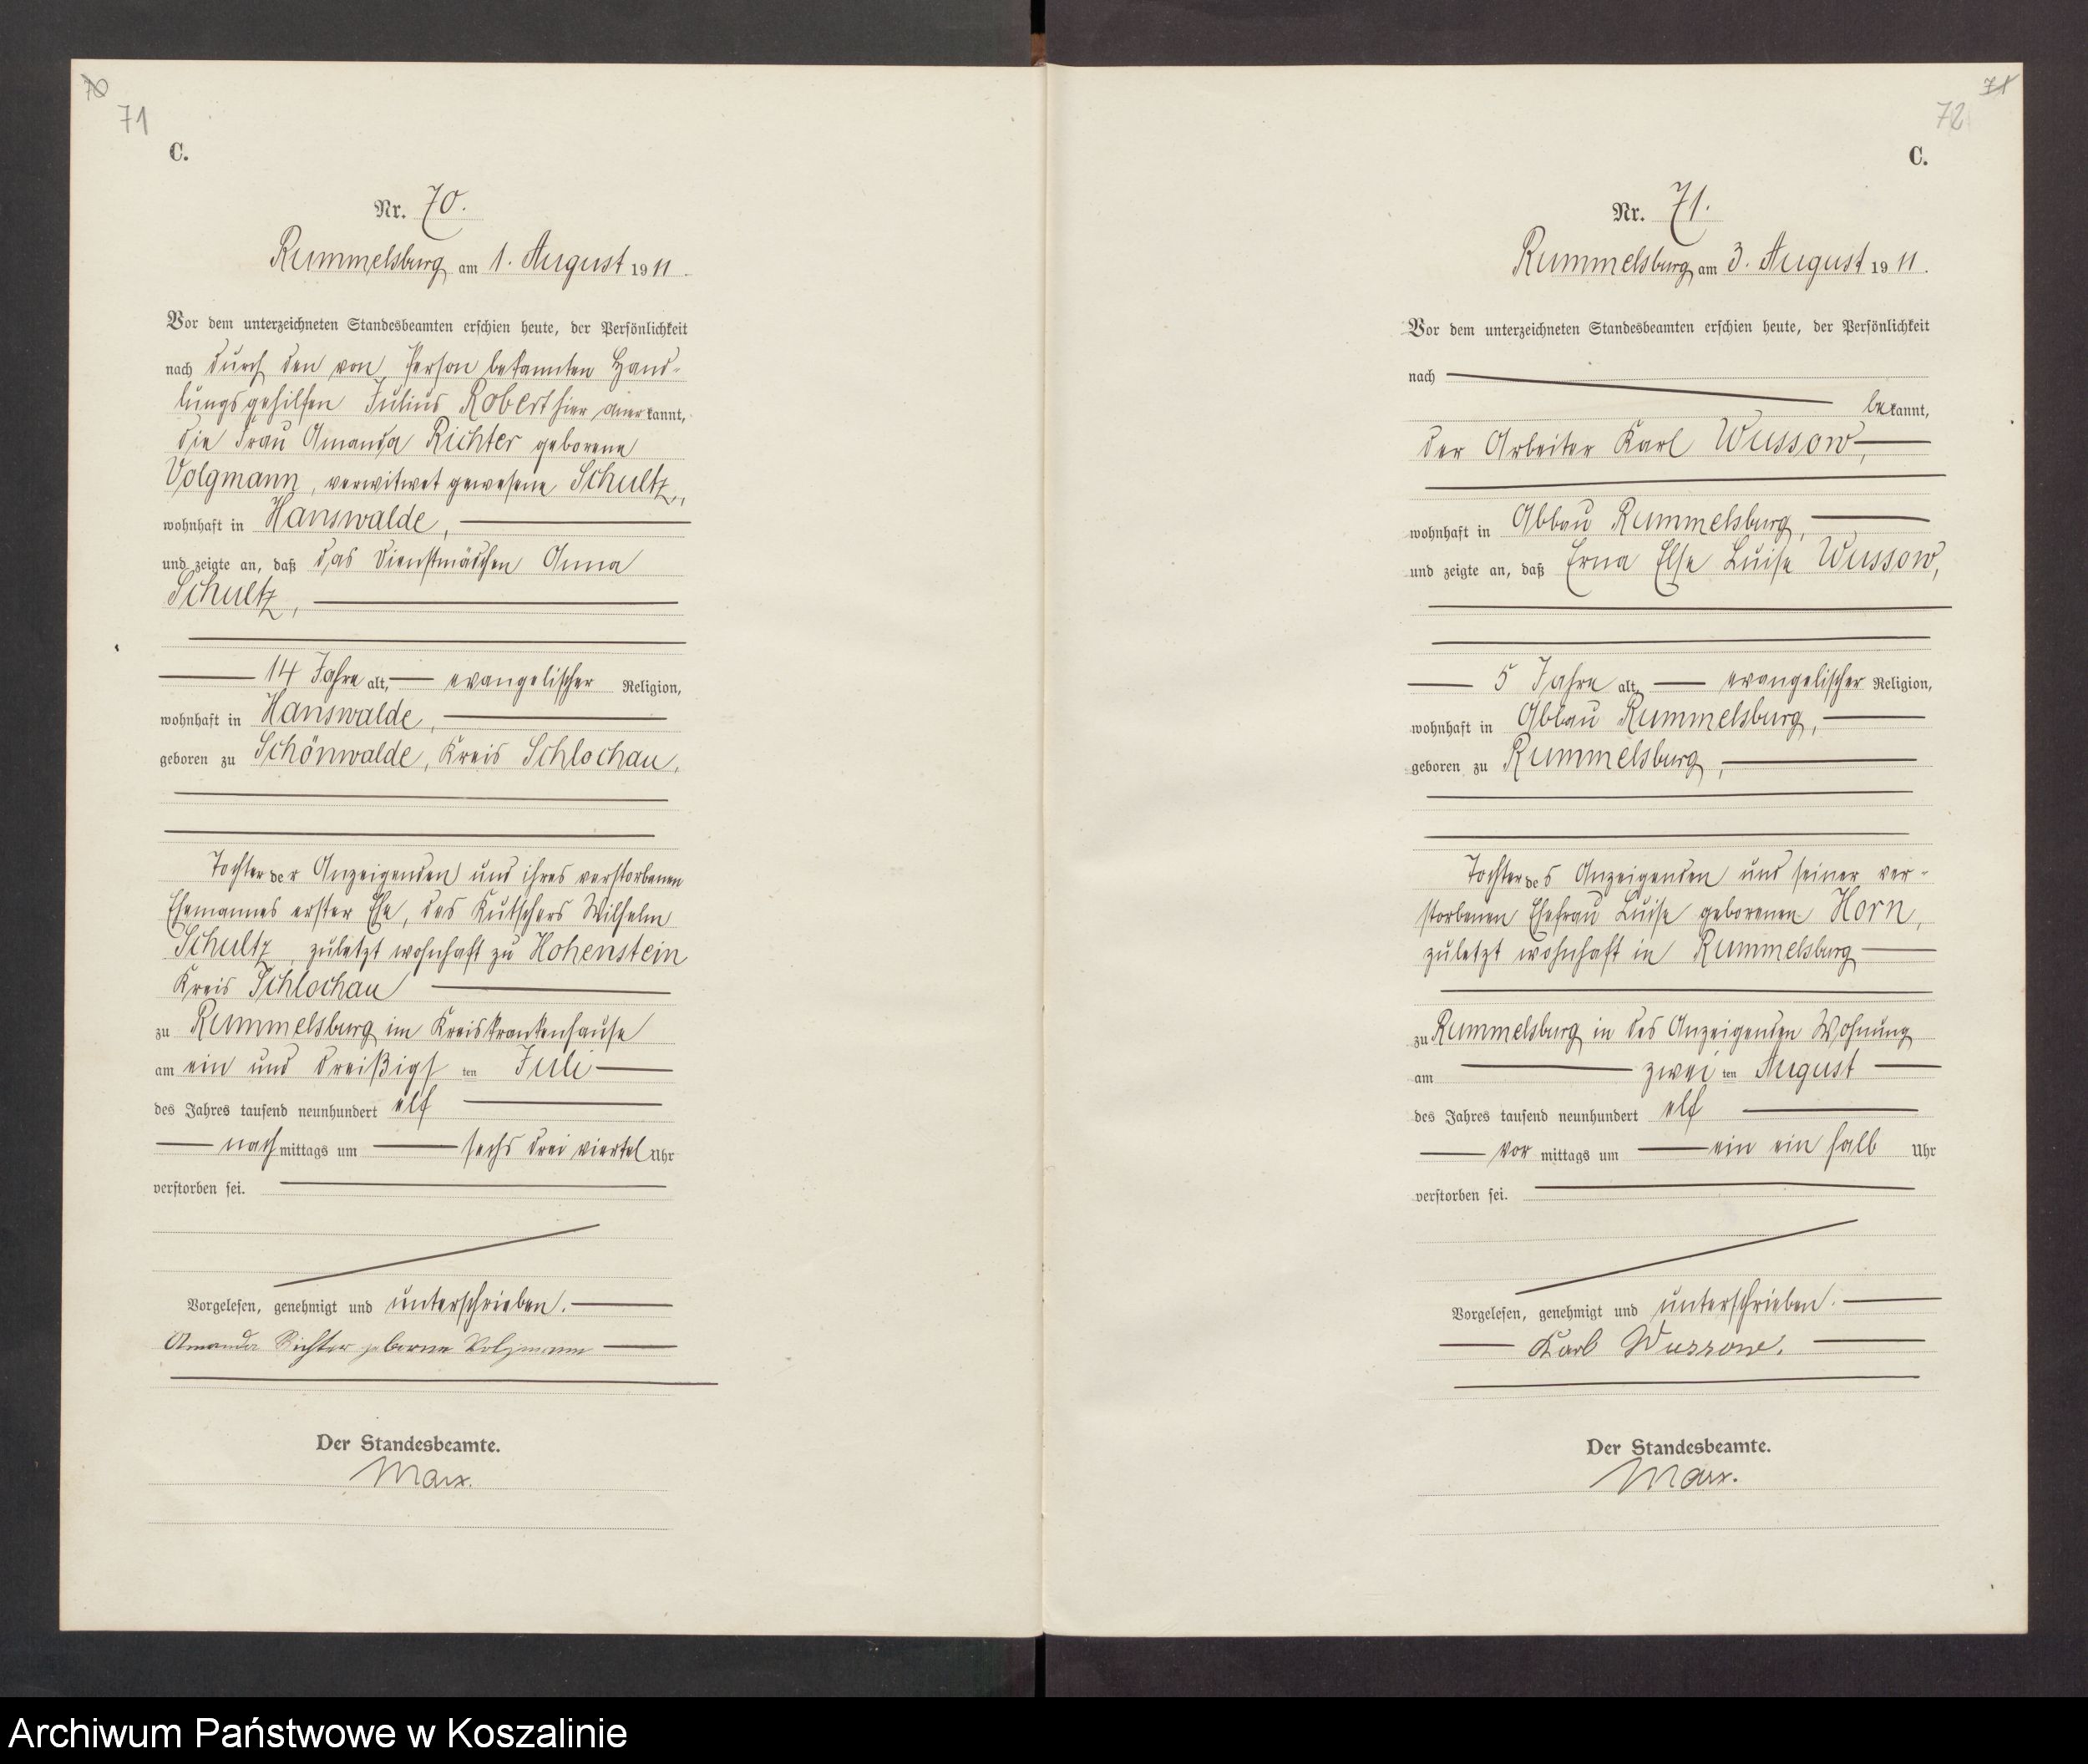 70
71
C.
Nr. 70.
Rummelsburg am 1. August 1911.
Vor dem unterzeichneten Standesbeamten erschien heute, der Persönlichkeit
nach durch den von Person bekannten Hand-
lungsgehilfen Julius Robert hier anerkannt,
die Frau Amanda Richter geborene
Volgmann, verwitwet gewesene Schultz,
wohnhaft in Hanswalde,
und zeigte an, daß das Dienstmädchen Anna
Schultz,
14 Jahre alt, evangelischer Religion,
wohnhaft in Hanswalde,
geboren zu Schönwalde, Kreis Schlochau,
Tochter der Anzeigenden und ihres verstorbenen
Ehemannes erster Ehe, des Kutschers Wilhelm
Schultz, zuletzt wohnhaft zu Hohenstein
Kreis Schlochau
zu Rummelsburg im Kreiskrankenhause
am ein und dreißigsten Juli
des Jahres tausend neunhundert elf
nachmittags um sechs drei viertel Uhr
verstorben sei.
Vorgelesen, genehmigt und unterschrieben.
Amanda Richter geborene Volgmann
Der Standesbeamte.
Marx.
71
72
C.
Nr. 71.
Rummelsburg am 3. August 1911.
Vor dem unterzeichneten Standesbeamten erschien heute, der Persönlichkeit
nach
bekannt,
der Arbeiter Karl Wussow,
wohnhaft in Abbau Rummelsburg,
und zeigte an, daß Erna Else Luise Wussow,
5 Jahre alt, evangelischer Religion,
wohnhaft in Abbau Rummelsburg,
geboren zu Rummelsburg,
Tochter des Anzeigenden und seiner ver-
storbenen Ehefrau Luise geborenen Horn,
zuletzt wohnhaft in Rummelsburg
zu Rummelsburg in des Anzeigenden Wohnung
am zweiten August
des Jahres tausend neunhundert elf
vormittags um ein ein halb Uhr
verstorben sei.
Vorgelesen, genehmigt und unterschrieben.
Karl Wussow.
Der Standesbeamte.
Marx.
Archiwum Państwowe w Koszalinie